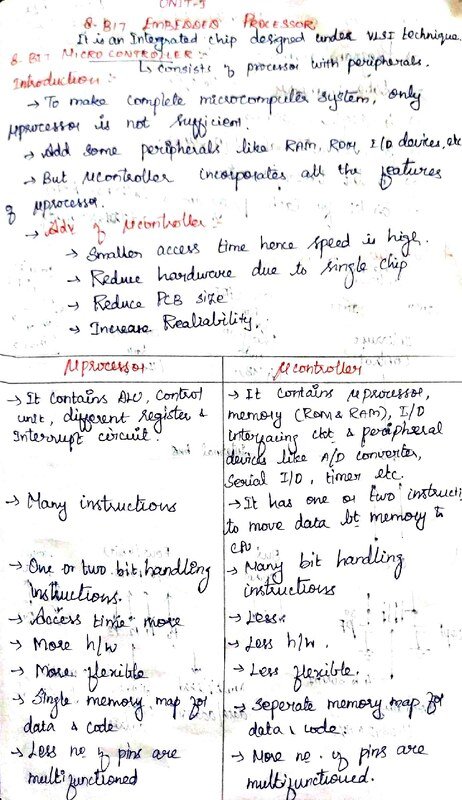 UNIT-5
8-BIT EMBEDDED PROCESSOR
It is an Integrated chip designed under VLSI technique.
8-BIT MICROCONTROLLER :-
↳ consists of processor with peripherals.
Introduction :-
→ To make complete microcomputer system, only
μprocessor is not sufficient.
→ Add some peripherals like RAM, ROM, I/O devices, etc
→ But μcontroller incorporates all the features
of μprocessor.
→ Adv of μcontroller :-
→ Smaller access time hence speed is high.
→ Reduce hardware due to single chip
→ Reduce PCB size
→ Increase Realiability.
μprocessor
→ It contains ALU, Control
unit, different register &
Interrupt circuit.
→ Many instructions
→ One or two bit handling
instructions.
→ Access time more
→ More h/w
→ More flexible
→ Single memory map for
data & code
→ Less no of pins are
multifunctioned
μcontroller
→ It contains μprocessor,
memory (ROM & RAM), I/O
interfacing ckt & peripheral
devices like A/D converter,
Serial I/O, timer etc.
→ It has one or two instructi
to move data bt memory to
CPU.
→ Many bit handling
instructions
→ Less.
→ Less h/w.
→ Less flexible.
→ Seperate memory map for
data & code.
→ More no. of pins are
multifunctioned.